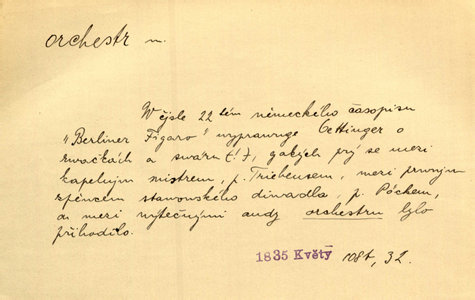 orchestr m.
W čjsle 22 tém německého časopisu
„Berliner Figaro" wyprawuge Oettinger o
zwačkách a swáru (!), gakých prý se mezi
kapelnjm mistrem, p. Triebensem, mezi prwnjm
zpěwcem stawowského diwadla, p. Pöckem,
a mezi wýtečnými audy orchestru bylo
přihodilo.
1835 Květy 108t, 32.